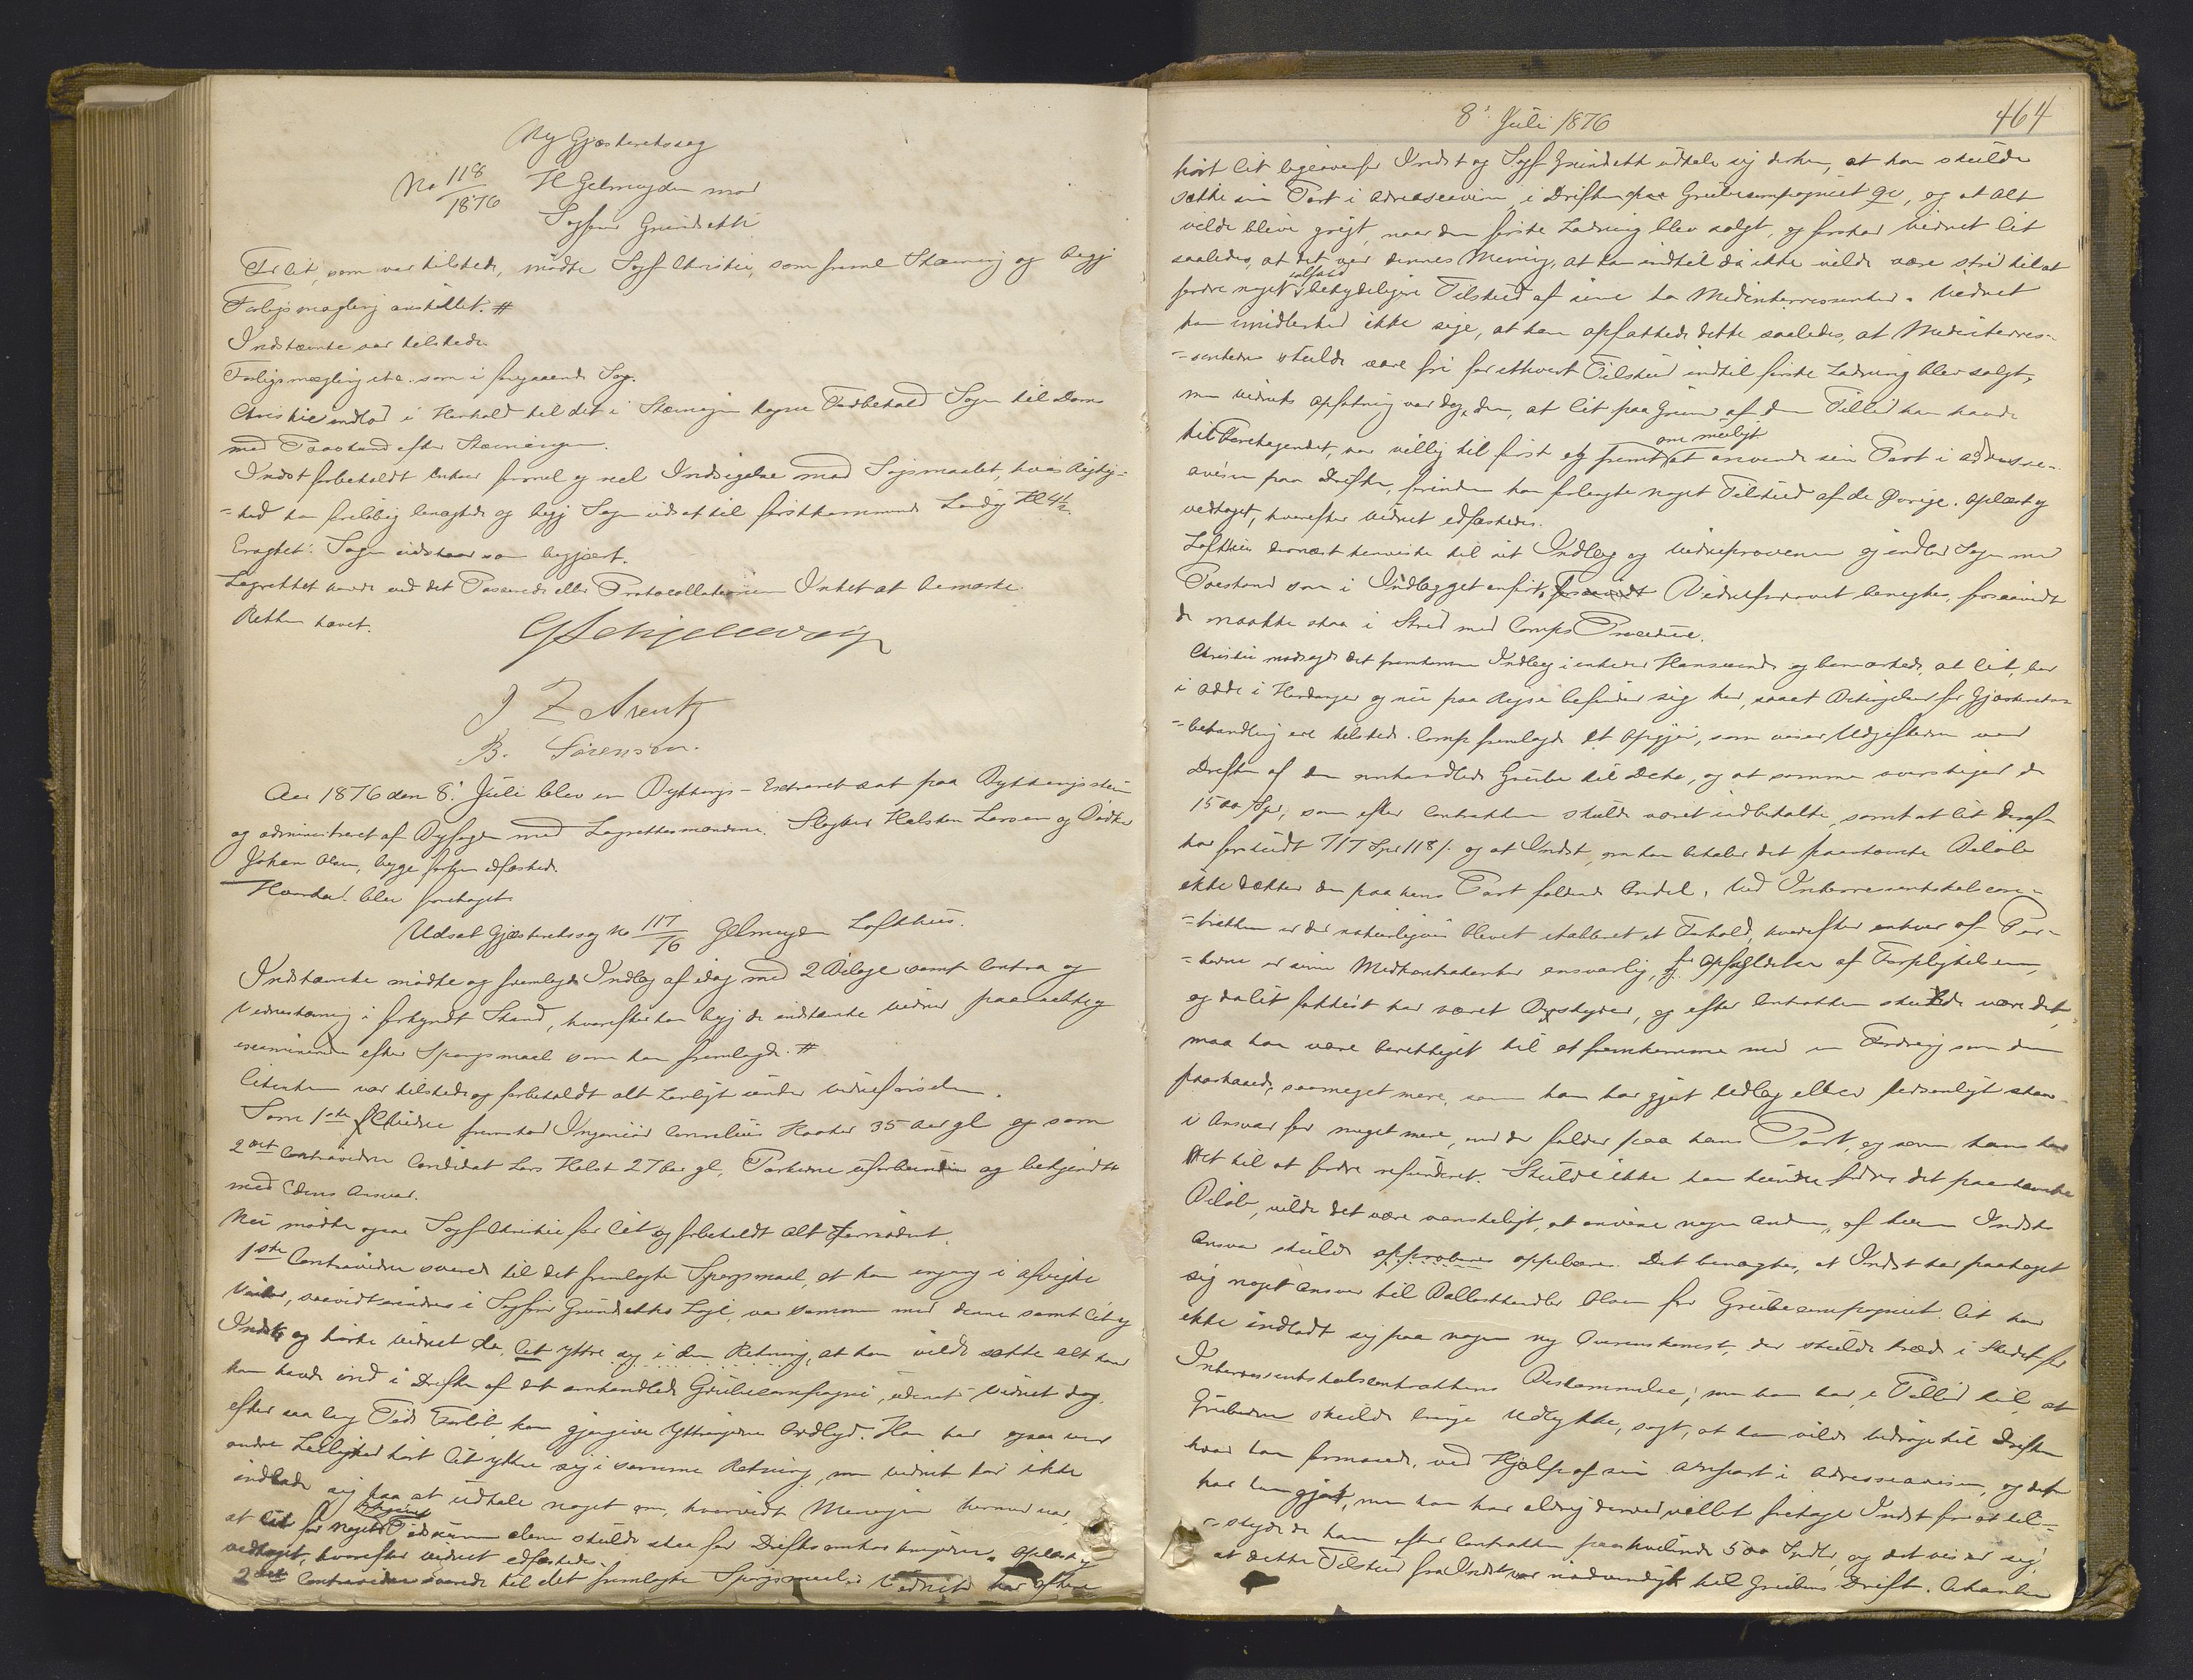 Ny Gjæsteretssag
No 118/1876 H Gelmuyden mod
Sagfører Grundseth
For Cit, som var tilstede, mødte Sagf Christie, som freml Stævning og begj
Forligsmægling anstillet. #
Indstævnte var tilstede
Forligsmægling etc. som i foregaaende Sag.
Christie indlod i Henhold til det i Stævningen tagne Forbehold Sagen til Doms
med Paastand efter Stævningen.
Indst forbeholdt enhver formel og reel Indsigelse mod Søgsmaalet, hvis Rigtig-
=hed han foreløbig benægtede og begj Sagen udsat til førstkommende Lørdag Kl 4½.
Eragtet: Sagen udstaar som begjært.
Lagrettet havde ved det Passerede eller Protocollationen Intet at bemærke.
Retten hævet.
J Z Arentz
B. Sørensen.
Aar 1876 den 8. Juli blev en Bythings-Extraret sat paa Bythingsstuen
og administreret af Byfogden med Lagrettesmændene: Slagter Halsten Larsen og Bødker
Johan Olsen, begge forhen edfæstede.
Hvorda blev foretaget:
Udsat Gjæsteretssag No 117/76 Gelmuyden Lofthus.
Indstævnte mødte og fremlagde Indlæg af idag med 2 Bilage samt Contra og
Vidnestævning i forkyndt Stand, hvorefter han begj de indstævnte Vidner paaraabte og
examinerede efter Spørgsmaal som han fremlagde. #
Citanten var tilstede og forbeholdt alt Lovligt under Vidneførselen.
Som 1ste Vidne fremstod Ingeniør Cornelius 35 Aar gl og som
2det Contravidne Candidat Lars Holst 27 Aar gl, Parterne uforbundne og bekjendte
med Edens Ansvar.
Nu mødte ogsaa Sagf Christie for Cit og forbeholdt alt Fornødent.
1ste Contravidne svared til det fremlagte Spørgsmaal, at han engang i afvigte
Vinter, saavidt erindres i Sagfører Grundseths Logi, var sammen med denne samt Cit og
Indst og hørte Vidnet da, Cit yttre sig i den Retning, at han vilde sætte alt hvad
han havde ind i Driften af det omhandlede Grubecompagni, uden at Vidnet dog,
efter saa lang Tids Forløb, kan gjengive Yttringens Ordlyd. Han har ogsaa ved
andre Leiligheder hørt Cit yttre sig i samme Retning, men Vidnet tør ikke
indlade sig paa at udtale noget om, hvorvidt Meningen hermed var,
at Cit for noget Tidsrum alene skulde staa for Driftsomkostningerne. Oplæst og
vedtaget, hvorefter Vidnet edfæstedes.
2det Contravidne svarede til det fremlagte Spørgsmaal: Vidnet har oftere
8' Juli 1876
464
hørt Cit ligeoverfor Indst og Sagf Grundseth udtale sig derhen, at han skulde
sætte sin Part i Adresseavisen i Driften paa Grubecompagniet qv, og at Alt
vilde blive greit, naar den første Ladning blev solgt, og forstod Vidnet Cit
saaledes, at det var dennes Mening, at han indtil da ikke vilde være strid til at
fordre noget ialfald betydeligere Tilskud af sine to Medinteressenter. Vidnet
kan imidlertid ikke sige, at han opfattede dette saaledes, at Medinteres-
=senterne skulde være fri for ethvert Tilskud indtil første Ladning blev solgt,
men Vidnets Opfatning var dog den, at Cit paa Grund af den Tillid han havde
til Foretagendet, var villig til først og fremst om muligt at anvende sin Part i Adresse-
avisen paa Driften, førinden han forlangte noget Tilskud af de Øvrige. Oplæst og
vedtaget, hvorefter Vidnet edfæstedes.
Lofthus dernæst henviste til sit Indlæg og Vidneprovene og indlod Sagen med
Paastand som i Indlægget anført, Vidneprovet benegtes, forsaavidt
de maatte staa i Strid med Comps Procedure.
Christie modsagde det fremkomne Indlæg i enhver Henseende og bemærkede, at Cit, bor
i Odde i Hardanger og nu paa Reise befinder sig her, saaat Betingelsen for Gjæsterets-
=behandling ere tilstede. Comp fremlagde et Opgjør, som viser Udgifterne ved
Driften af den omhandlede Grube til Dato, og at samme overstiger de
1500 Spd, som efter Contrakten skulde været indbetalte, samt at Cit deraf
har forskudt 717 Spd 118 s. og at Indst, om han betaler det paastævnte Beløb
ikke dækker den paa hans Part faldende Andel. Ved Interressentskabscon-
=trakten er der naturligvis blevet etableret et Forhold, hvorefter enhver af Par-
=terne er sine Medkontrahenter ansvarlig for Opfyldelsen af Forpligtelserne,
og da Cit faktisk har været Bestyrer, og efter Contrakten skulde være det,
maa han være berettiget til at fremkomme med en Fordring som den
paastaaede, saameget mere, som han har gjort Udlæg eller personligt staar
i Ansvar for meget mere, end der falder paa hans Part, og som han har
Ret til at fordre refunderet. Skulde ikke han kunne fordre det paastævnte
Beløb, vilde det være vanskeligt, at anvise nogen Anden, af hvem Indsts
Ansvar skulde opprobere oppebæres. Det benægtes, at Indst har paataget
sig noget Ansvar til Ballasthandler Olsen for Grubecompagniet. Cit har
ikke indladt sig paa nogen ny Overenskomst, der skulde træde i Stedet for
Interressentskabscontraktens Bestemmelse; men han har, i Tillid til, at
Gruberne skulde bringe Udbytte, sagt, at han vilde bidrage til Driften
hvad han formaaede, ved Hjælp af sin Anpart i Adresseavisen, og det
har han gjort, men han har aldrig derved villet fritage Indst for at til-
=skyde de ham efter Contrakten paahvilende 500 Spdlr, og det viser sig,
at dette Tilskud fra Indst var nødvendigt til Grubens Drift. Citanten